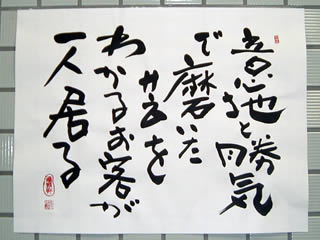 意地と勝気
で磨いた
芸を
わかるお客が
一人居る